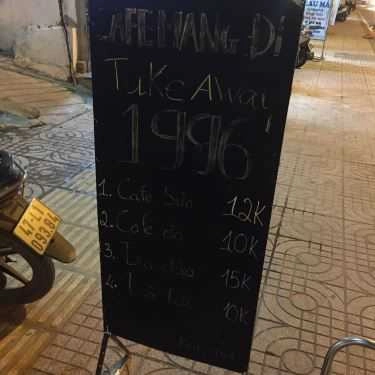 CAFE MANG ĐI
Take Away
1996
1. Cafe Sữa 12K
2. Cafe đá 10K
3. 15K
4. 10K
47-L1
093.84